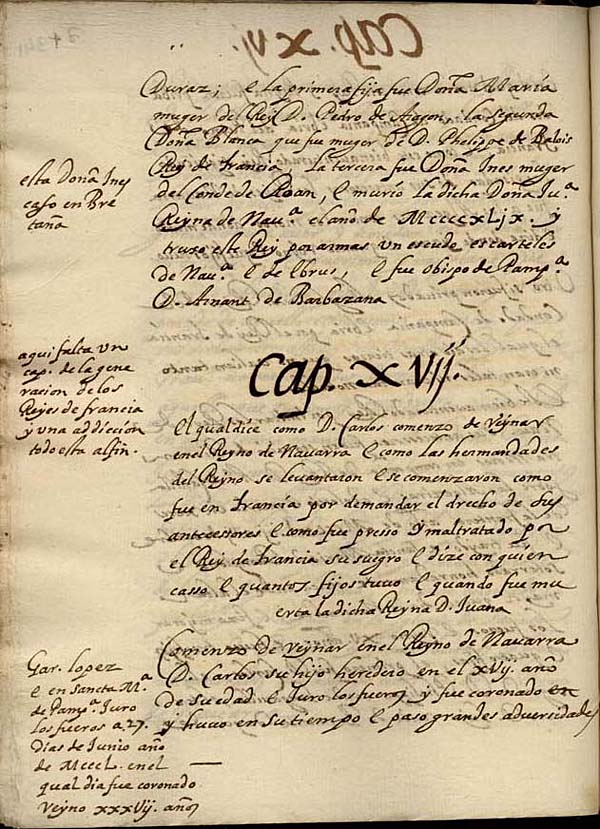 Duraz; e la primera fija fue Doña Maria
muger del Rey D. Pedro de Aragon, la segunda
Doña Blanca que fue muger de D. Phelippe de Balois
Rey de francia la tercera fue Doña Ines muger
del Conde de Roan, e murio la dicha Doña Ju.ª
Reyna de Nau.ª el año de MccccxLjx. y
truxo este Rey por armas un escudo escarteles
de Nau.ª e de Ebrus, e fue obispo de Pamp.ª
D. Arnant de Barbazana
esta Doña Ines
caso en Bre
taña
Cap. xvij.
aqui falta un
cap. de la gene
racion de los
Reyes de francia
y una addiccion
todo esta al fin.
El qual dice como D. Carlos comenzo de Reynar
en el Reyno de Navarra e como las hermandades
del Reyno se levantaron e se comenzaron como
fue en francia por demandar el drecho de sus
antecessores e como fue presso y maltratado por
el Rey de francia su suegro e dize con quien
casso e quantos fijos tuvo e quando fue mu
erta la dicha Reyna D. Juana
Comenzo de reynar en el Reyno de Navarra
D. Carlos su hijo heredero en el xvij. año
de su edad e Juro los fueros y fue coronado en
y huvo en su tiempo e paso grandes adversidades
Gar. Lopez
e en Sancta M.ª
de Pamp.ª Juro
los fueros a 27.
dias de Junio año
de MccCL. en el
qual dia fue coronado
Reyno xxxvij. años